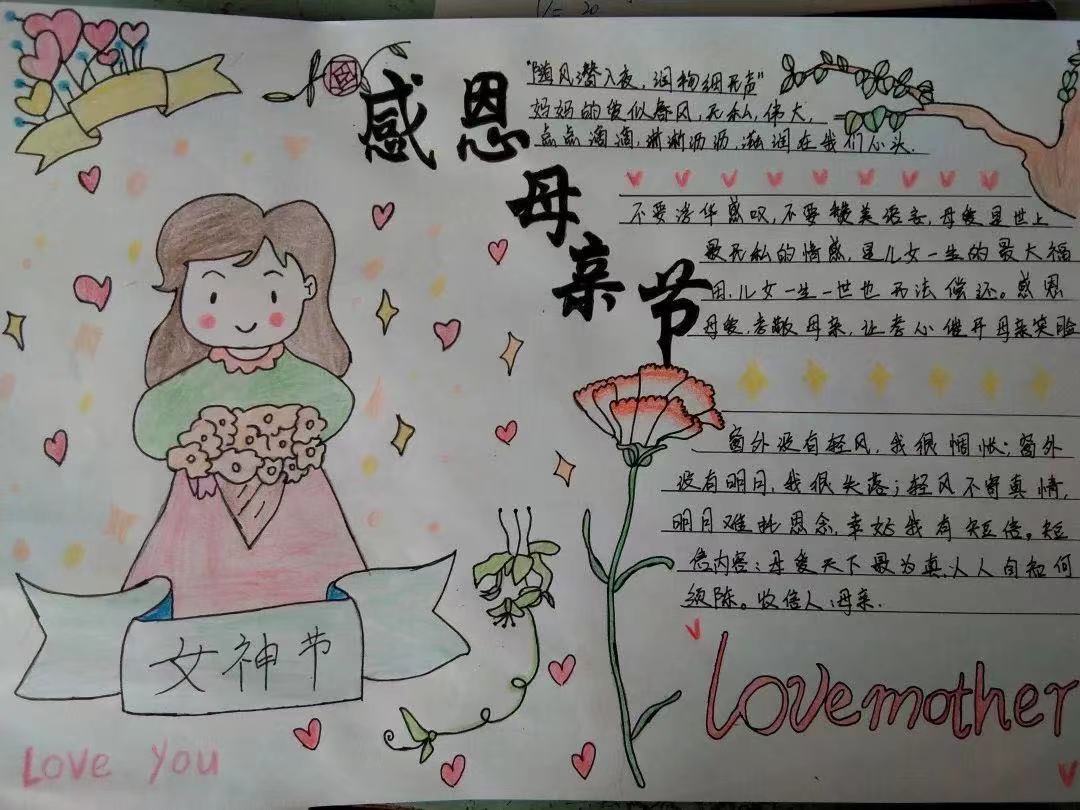 感恩
母
亲
节
"随风潜入夜，润物细无声"
妈妈的爱似春风，无私，伟大，
点点滴滴，淅淅沥沥，滋润在我们心头.
不要浮华感叹，不要赞美语言，母爱是世上
最无私的情感，是儿女一生的最大福
田，儿女一生一世也无法偿还。感恩
母爱，孝敬母亲，让孝心催开母亲笑脸
窗外没有轻风，我很惆怅；窗外
没有明月，我很失落；轻风不寄真情，
明月难批思念，幸好我有短信。短
信内容：母爱天下最为真，人人自知何
须陈。收信人：母亲.
女神节
Love You
Love mother